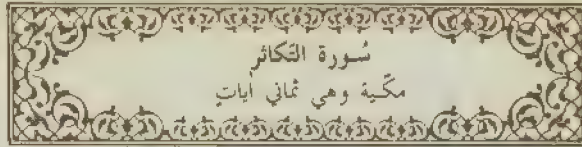 سُورة التّكاثر
مكّية وهي ثماني آياتٍ